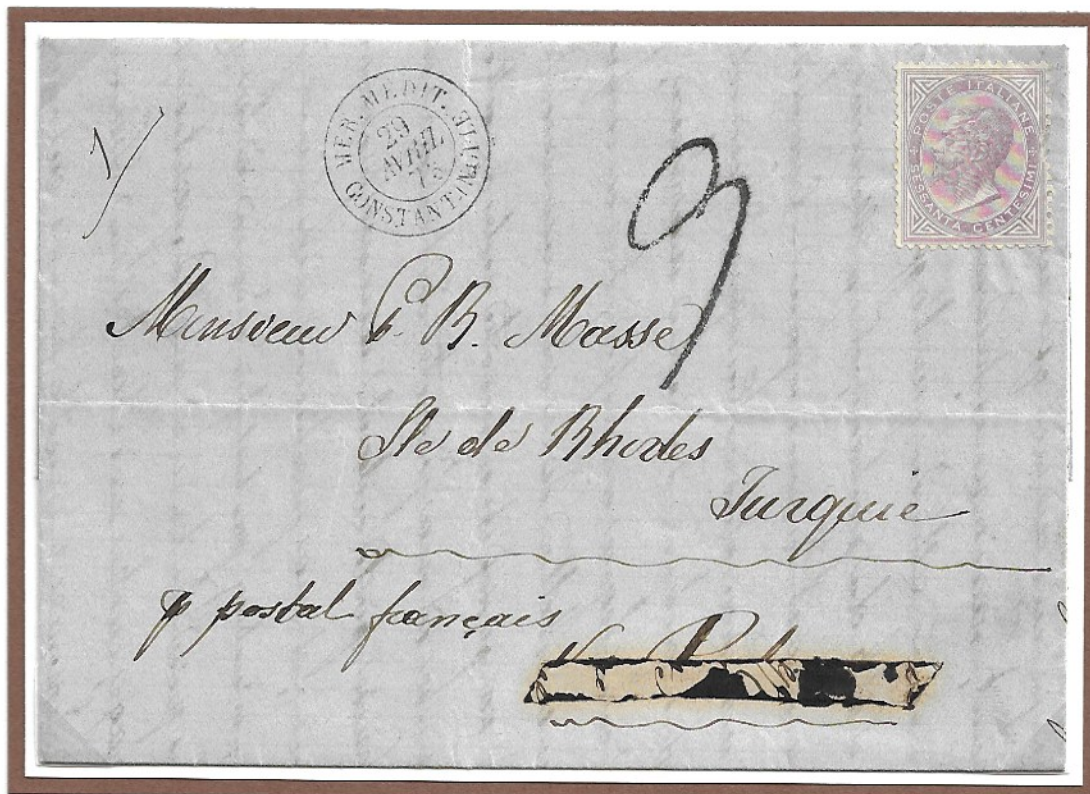 MER. MEDIT.
29
AVRIL
75
CONSTANTINE
POSTE ITALIANE
SESSANTA CENTESIMI
9
Monsieur P. B. Masse
Ile de Rhodes
Turquie
p postal français